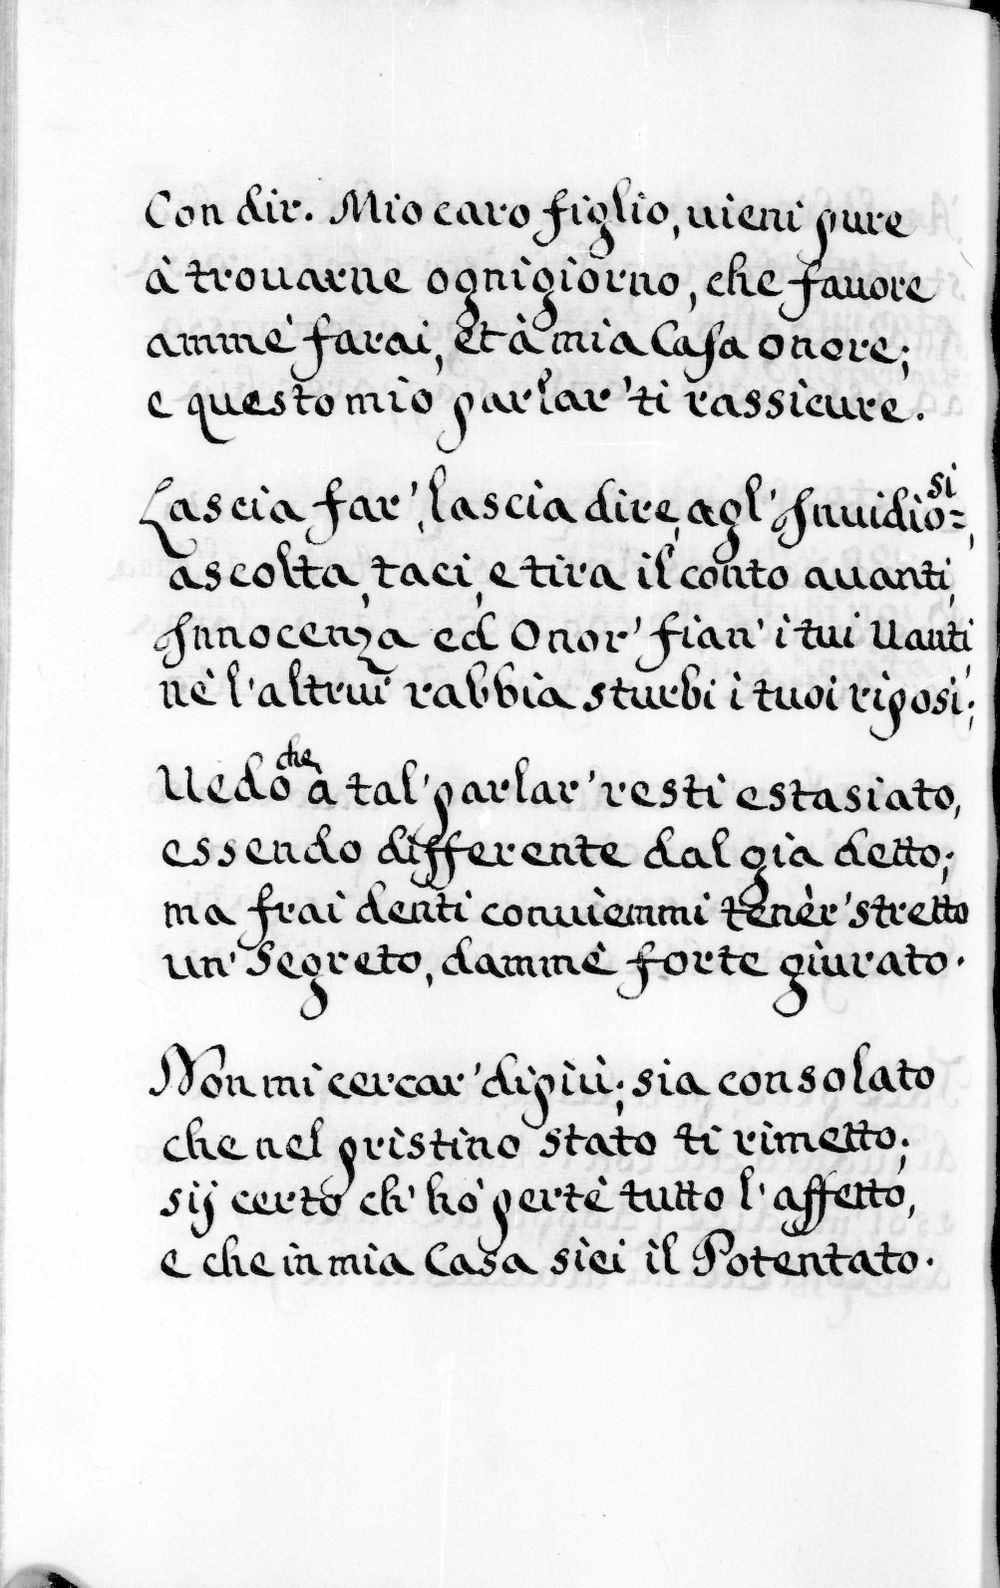 Con dir. Mio caro figlio, uieni pure
à trouarne ogni giorno, che fauore
ammè farai, et à mia Casa onore;
e questo mio parlar' ti rassicure.
Lascia far', lascia dire, agl' Inuidio=si,
ascolta, taci, e tira il conto auanti,
Innocenza ed Onor' fian' i tui Uanti
nè l'altrui rabbia sturbi i tuoi riposi;
Uedo che à tal' parlar' resti estasiato,
essendo differente dal già detto;
ma frai denti conuiemmi tenèr' stretto
un' Segreto, dammè forte giurato.
Non mi cercar' dipiù; sia consolato
che nel pristino stato ti rimetto;
sij certo ch' hò pertè tutto l' affetto,
e che in mia Casa siei il Potentato.